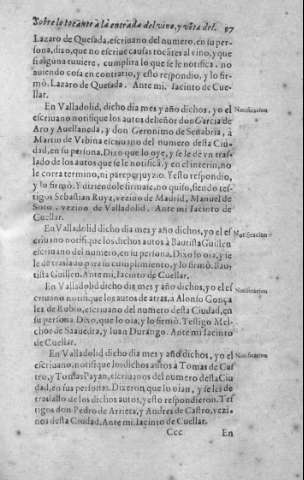 Sobre lo tocante à la entrada del vino, y vẽta del. 97
Lazaro de Quesada, escriuano del numero, en su per-
sona, dixo, que no escriue causas tocãtes al vino, y que
si alguna tuuiere, cumplira lo que se le notifica, no
auiendo cosa en contrario, y esto respondio, y lo fir-
mò. Lazaro de Quesada. Ante mi. Iacinto de Cue-
llar.
En Valladolid, dicho dia mes y año dichos, yo el
escriuano notifique los autos del señor don Garcia de
Aro y Auellaneda, y don Geronimo de Senabria, à
Martin de Vrbina escriuano del numero desta Ciu-
dad, en su persona. Dixo que lo oye, y se le dè vn tras-
lado de los autos que se le notificã, y en el interin, no
le corra termino, ni pare perjuyzio. Y esto respondio,
y lo firmò. Y diziendole firmasse, no quiso, siendo tes-
tigos Sebastian Ruyz, vezino de Madrid, Manuel de
Soto, vezino de Valladolid. Ante mi Iacinto de
Cuellar.
Notificacion
En Valladolid dicho dia mes y año dichos, yo el es
criuano notifiquè los dichos autos à Bautista Guillen
escriuano del numero, en su persona. Dixo lo oìa, y se
le dè traslado para su cumplimiento, y lo firmò. Bau-
tista Guillen. Ante mi, Iacinto de Cuellar.
Notificacion
En Valladolid dicho dia mes, y año dichos, yo el es
criuano notifique los autos de atras, à Alonso Gonça
lez de Rubio, escriuano del numero desta Ciudad, en
su persona. Dixo, que lo oìa, y lo firmò. Testigo Mel-
chor de Saauedra, y Iuan Durango. Ante mi Iacinto
de Cuellar.
Notificacion
En Valladolid dicho dia mes y año dichos, yo el
escriuano, notifique los dichos autos à Tomas de Cas
tro, y Tomas Payan, escriuanos del numero desta Ciu
dad, en sus personas. Dixeron, que lo oìan, y se les dè
traslado de los dichos autos, y esto respondieron. Tes
tigos don Pedro de Arrieta, y Andres de Castro, vezi-
nos desta Ciudad. Ante mi. Iacinto de Cuellar.
Notificacion
Ccc En